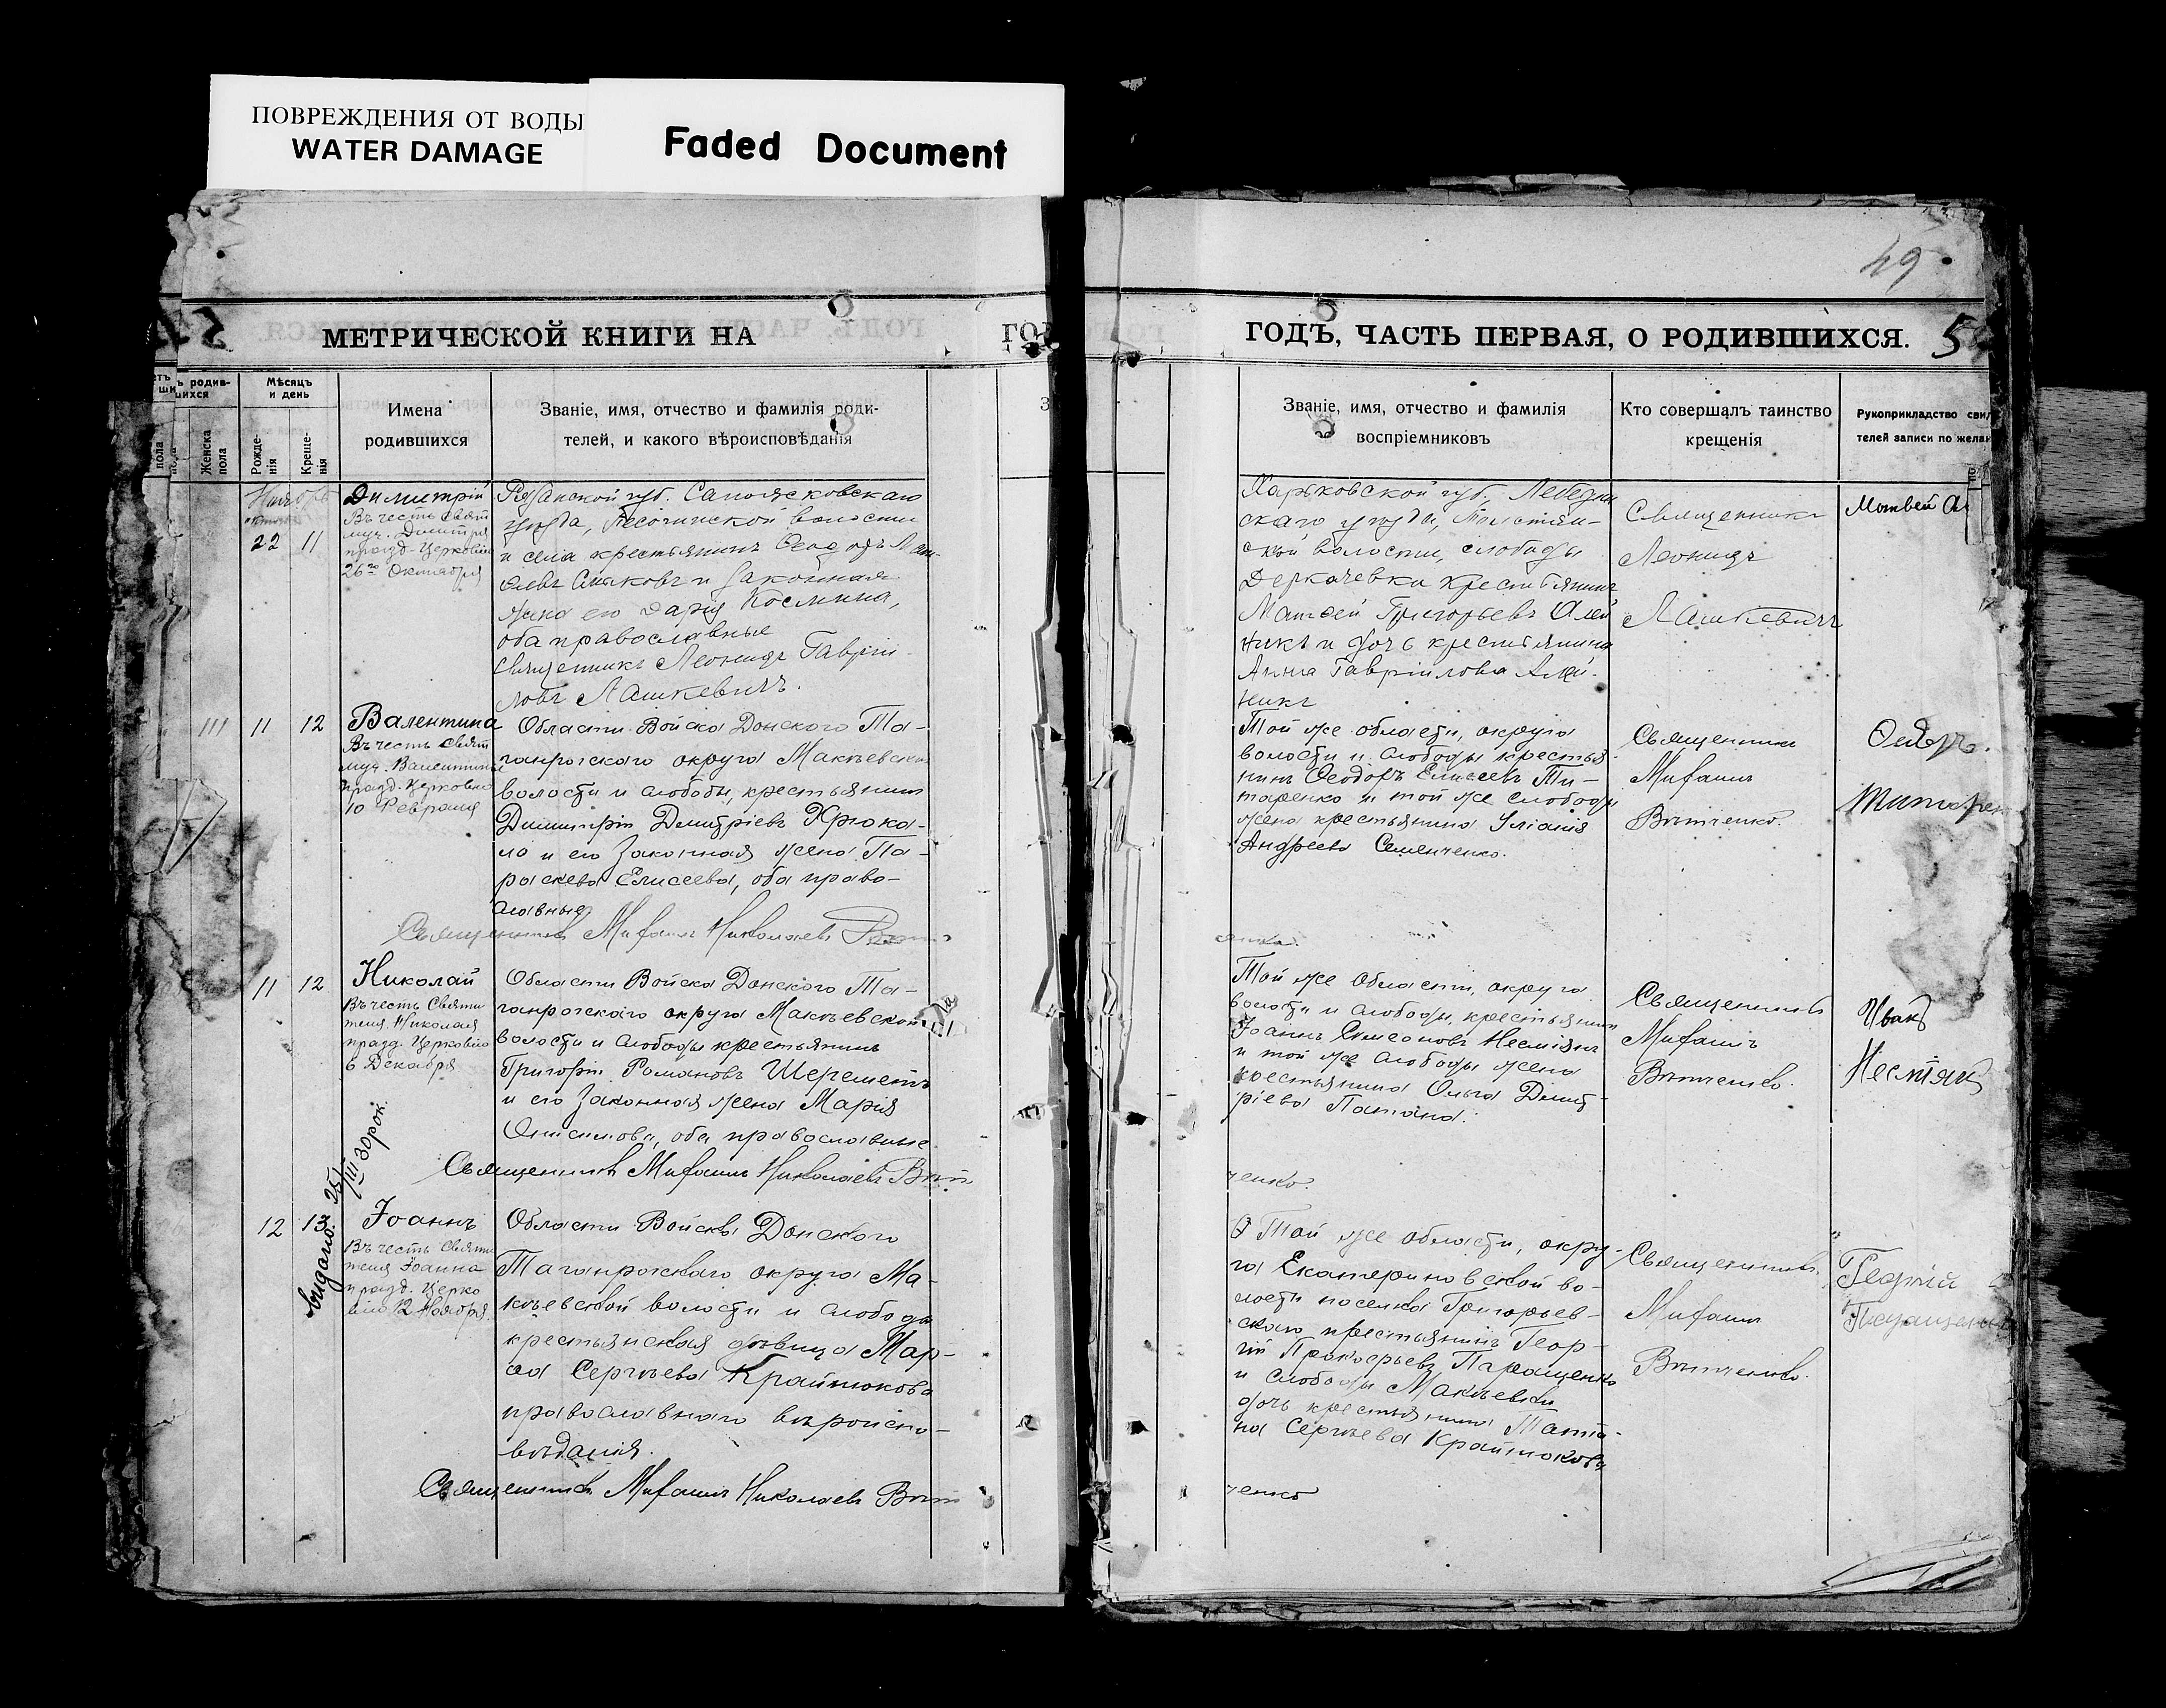 ПОВРЕЖДЕНИЯ ОТ ВОДЫ
WATER DAMAGE
Faded Document
49
МЕТРИЧЕСКОЙ КНИГИ НА
ГОДЪ, ЧАСТЬ ПЕРВАЯ, О РОДИВШИХСЯ.
5
Мѣсяцъ
и день
Женска
пола
Рожде-
нія
Креще-
нія
Имена
родившихся
Званіе, имя, отчество и фамилія роди-
телей, и какого вѣроисповѣданія
Званіе, имя, отчество и фамилія
воспріемниковъ
Кто совершалъ таинство
крещенія
Рукоприкладство
телей записи по
22 11
Димитрій
Въ честь Свят
муч. Димитр
празд. Церковію
26го Октября
Рязанской губ. Сапожковскаго
уѣзда, Песочинской волости
и села крестьянинъ
и законная
жена его Дарія Космина,
оба православные
Священникъ Леонидъ Гаврii-
ловъ Лашкевичъ.
Харьковской губ. Лебедин
скаго уѣзда,
ской волости, слободы
Деркачевки крестьянинъ
Матвей Григорьевъ Олей
никъ и дочь крестьянина
Анна Гавріилова Алей-
никъ
Священникъ
Леонидъ
Лашкевичъ
Матвей
11 12
Валентина
Въ честь Свят
муч. Валентины
празд. Церковію
10 Февраля
Области Войска Донского Та-
ганрогскаго округа Макѣевской
волости и слободы, крестьянинъ
Димитрій Димитріевъ Крюка-
ло и его законная жена Па-
раскева Елисеева, оба право-
славные.
Священникъ Мифаилъ Николаевъ
Той же области, округа
волости и слободы крестья-
нинъ Ѳеодоръ Елисеевъ Ти-
таренко и той же слободы
жена крестьянина Уліанія
Андреева Семенченко.
Священникъ
Мифаилъ
Вѣтченко.
11 12
Николай
Въ честь Святи
теля Николая
празд. Церковію
6 Декабря
Области Войска Донского Та-
ганрогскаго округа Макѣевской
волости и слободы крестьянинъ
Григорій Романовъ Шереметъ
и его законная жена Марія
Онисимова, оба православные
Священникъ Мифаилъ Николаевъ Вѣт
ченко.
Той же области, округа
волости и слободы, крестьянинъ
Іоаннъ Симеоновъ Несміянъ
и той же слободы жена
крестьянина Ольга Димит-
ріева
Священникъ
Мифаилъ
Вѣтченко.
Иванъ
Несміянъ
видано 25/III 30 рок.
12 13
Іоаннъ
Въ честь Святи
теля Іоанна
празд. Церко
вію 12 Ноября.
Области Войска Донского
Таганрогскаго округа Ма-
кѣевской волости и слободы
крестьянская дѣвица Мар-
ѳа Сергѣева Крайнюкова
православнаго вѣроиспо-
вѣданія.
Священникъ Мифаилъ Николаевъ Вѣт
ченко
Той же области, окру-
га Екатериновской во-
лости поселка Григорьев-
скаго крестьянинъ Геор-
гій Прокофьевъ Паращенко
и слободы Макѣевки
дочь крестьянина Татiа-
на Сергѣева Крайнюкова
Священникъ
Мифаилъ
Вѣтченко.
Георгій